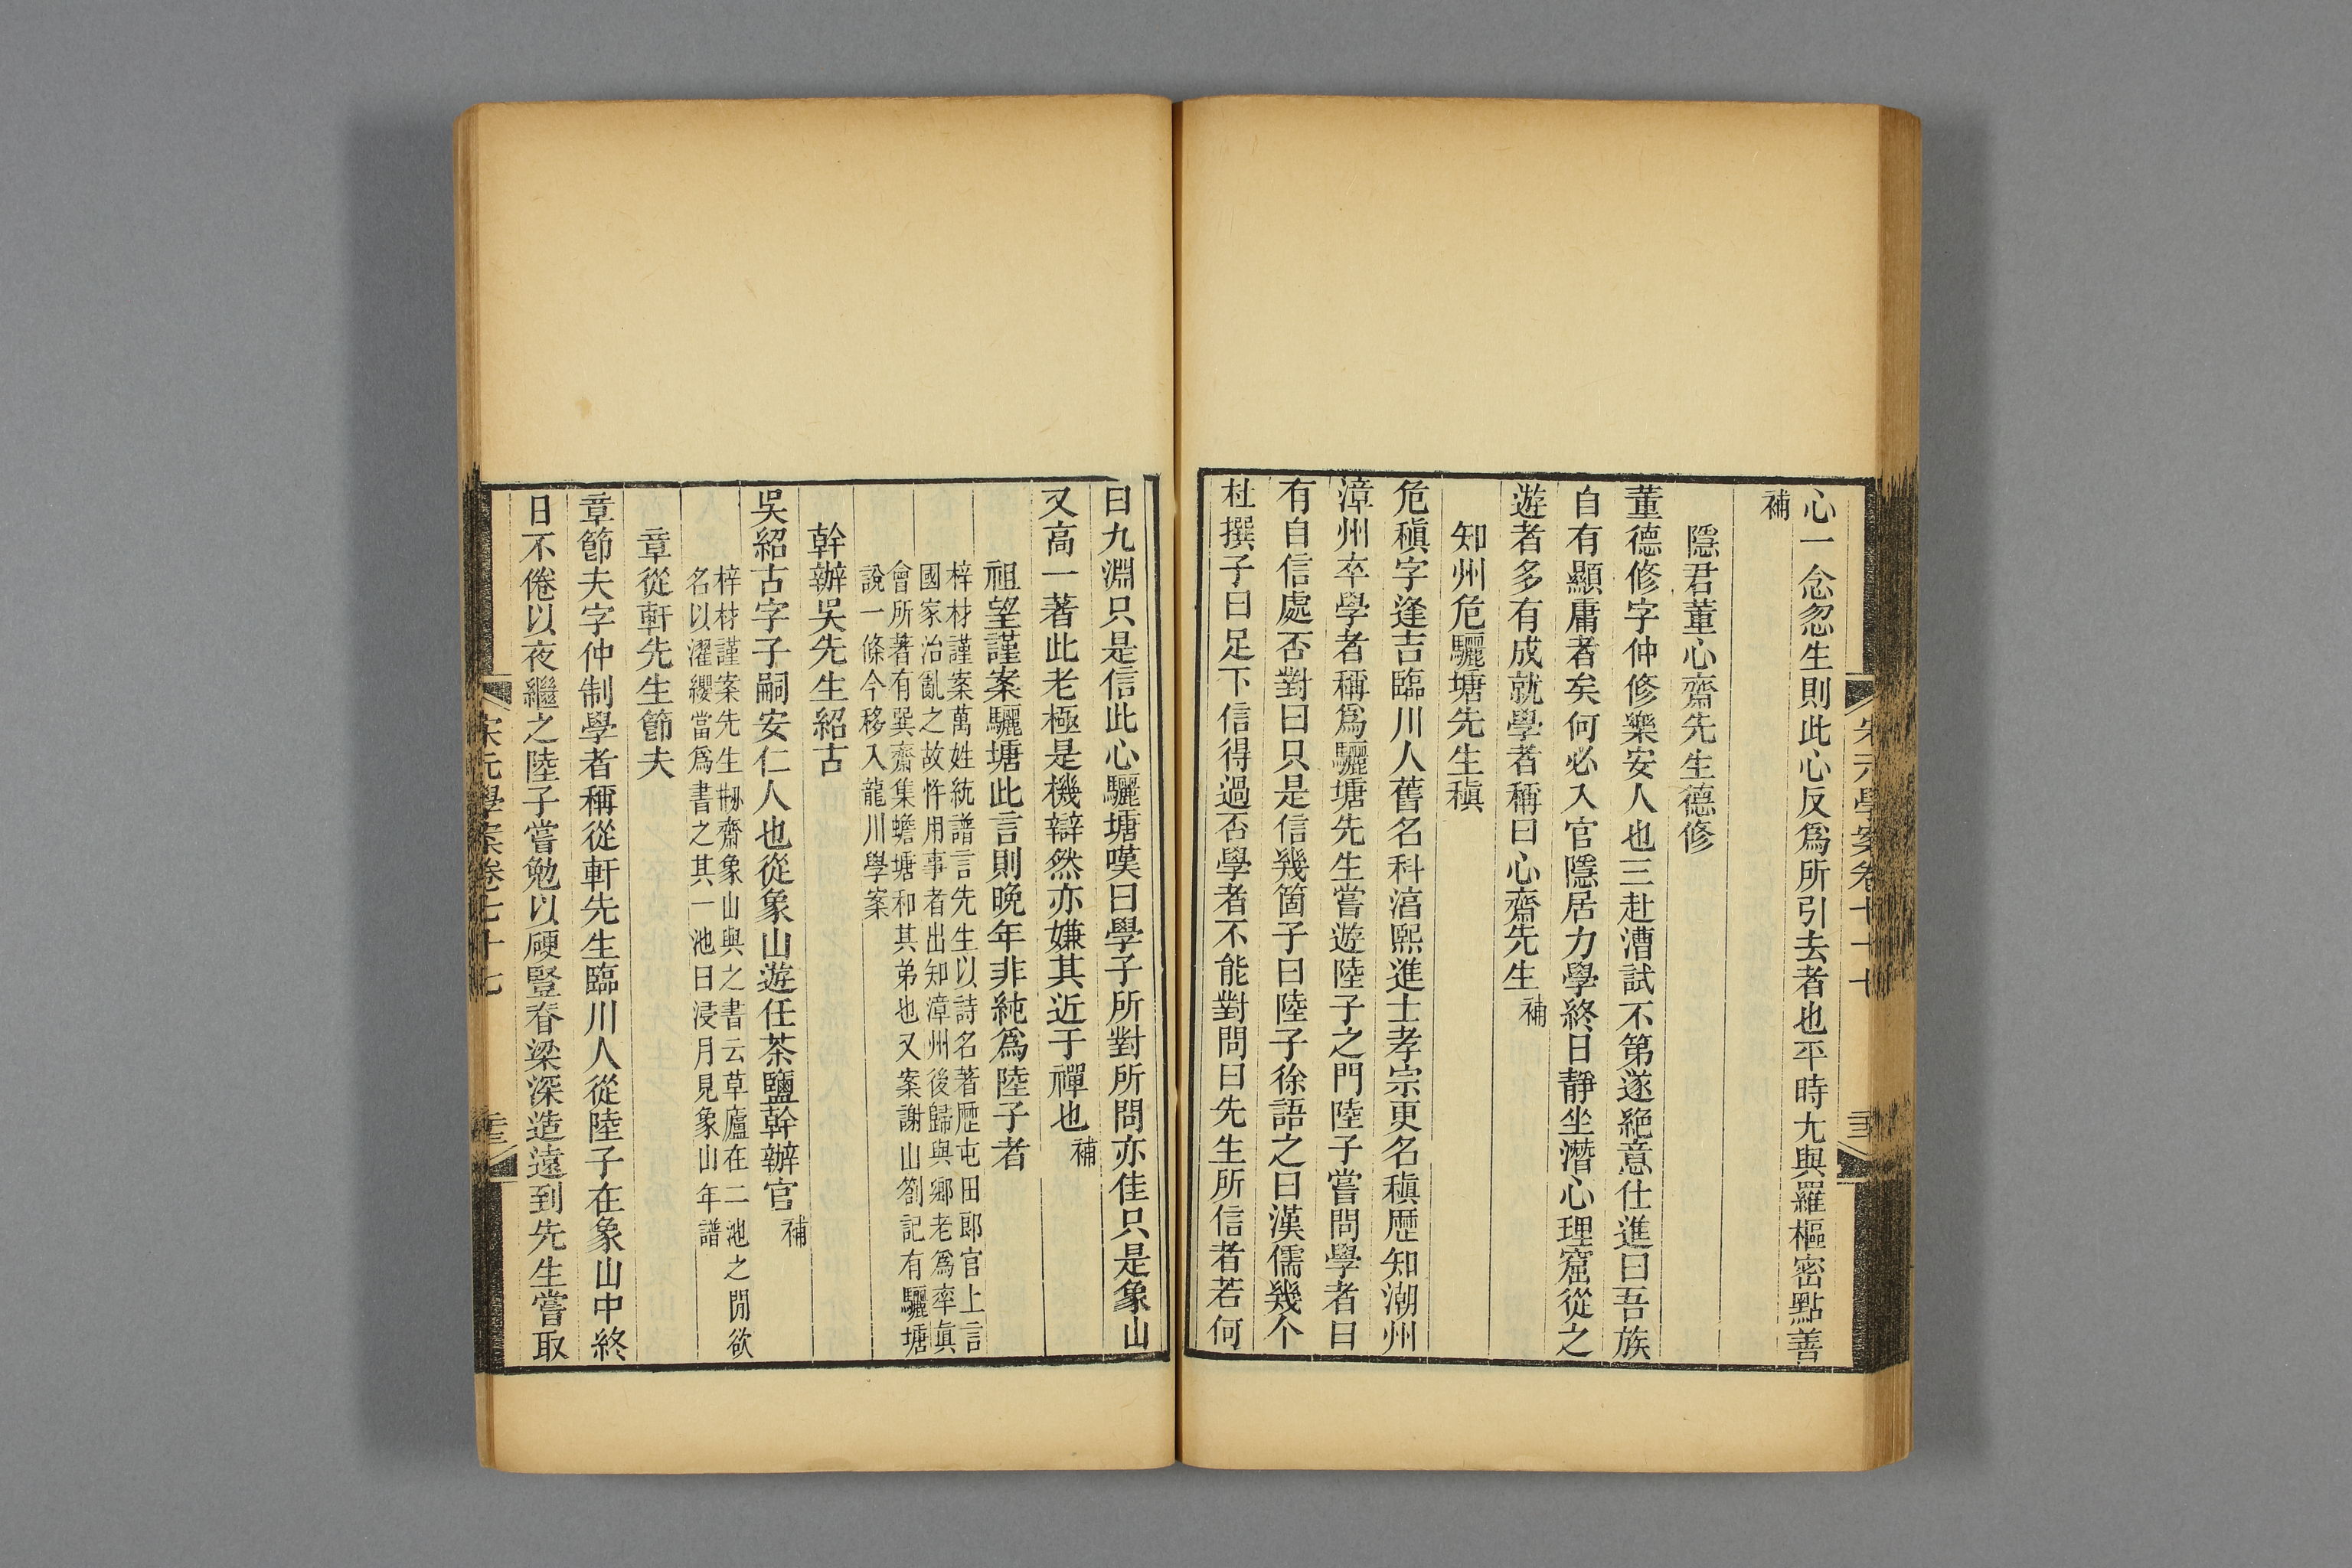 心一念忽生則此心反爲所引去者也平時尢與羅樞密點善
補
隱君董心齋先生德修
董德修字仲修樂安人也三赴漕試不第遂絕意仕進曰吾族
自有顯庸者矣何必入官隱居力學終日靜坐潛心理窟從之
遊者多有成就學者稱曰心齋先生補
知州危驪塘先生稹
危稹字逢吉臨川人舊名科淳熙進士孝宗更名稹歷知潮州
漳州卒學者稱爲驪塘先生嘗遊陸子之門陸子嘗問學者曰
有自信處否對曰只是信幾箇子曰陸子徐語之曰漢儒幾个
杜撰子曰足下信得過否學者不能對問曰先生所信者若何
曰九淵只是信此心驪塘嘆曰學子所對所問亦佳只是象山
又高一著此老極是機辯然亦嫌其近于禪也補
祖望謹案驪塘此言則晚年非純爲陸子者
梓材謹案萬姓統譜言先生以詩名著歷屯田郎官上言
國家治亂之故忤用事者出知漳州後歸與鄉老爲率眞
會所著有巽齋集蟾塘和其弟也又案謝山劄記有驪塘
說一條今移入龍川學案
幹辦吳先生紹古
吳紹古字子嗣安仁人也從象山遊任茶鹽幹辦官補
梓材謹案先生㓨齋象山與之書云草廬在二池之閒欲
名以濯纓當爲書之其一池日浸月見象山年譜
章從軒先生節夫
章節夫字仲制學者稱從軒先生臨川人從陸子在象山中終
日不倦以夜繼之陸子嘗勉以硬豎脊梁深造遠到先生嘗取
宋元學案卷七十七